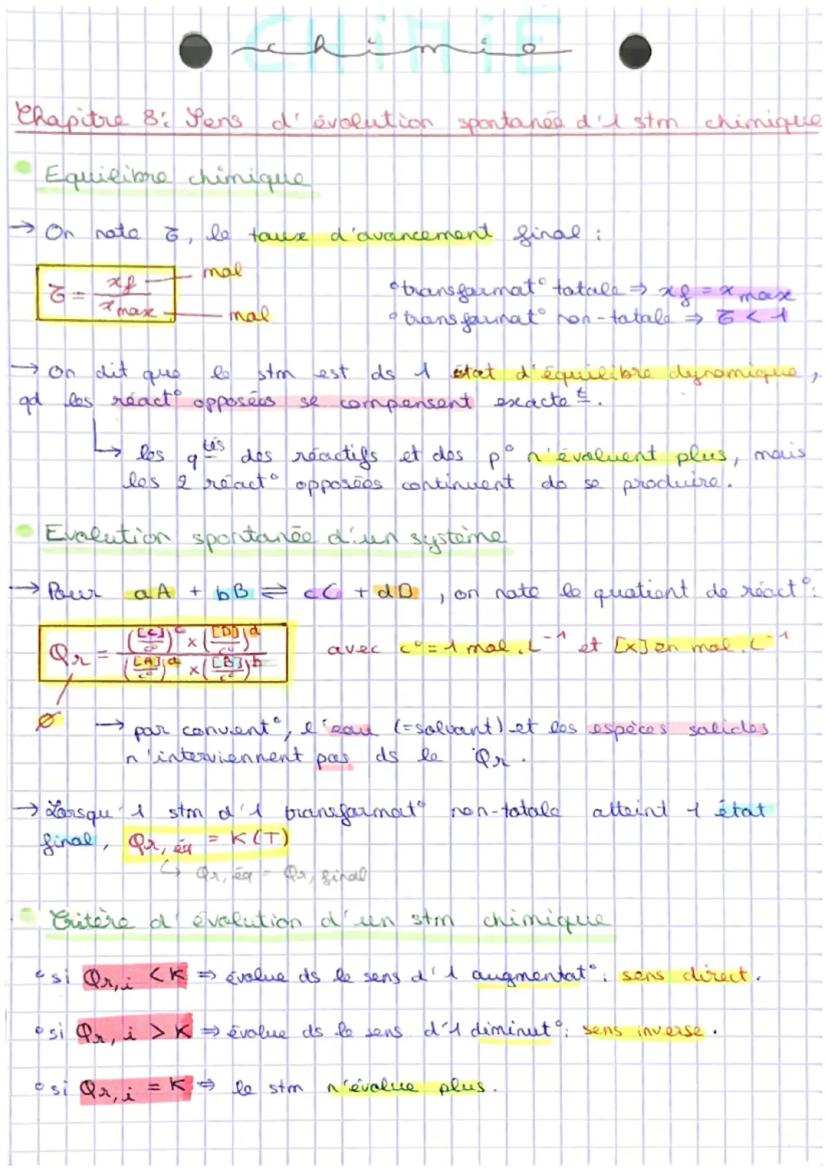 CHIMIE
chimie
Chapitre 8: Sens d'évolution spontanée d'1 stm chimique
Equilibre chimique
→ On note τ, le taux d'avancement final :
τ = xf / x max
mol
mol
• transformat° totale ⇒ xf = x max
• transformat° non-totale ⇒ τ < 1
→ On dit que le stm est ds 1 état d'équilibre dynamique,
qd les réact° opposées se compensent exacte t.
↳ les q tés des réactifs et des p° n'évoluent plus, mais
les 2 réact° opposées continuent de se produire.
Evolution spontanée d'un système
→ Pour aA + bB ⇌ cC + dD , on note le quotient de réact°:
Qr = (([C]/c°)^c × ([D]/c°)^d) / (([A]/c°)^a × ([B]/c°)^b) avec c° = 1 mol.L⁻¹ et [X] en mol.L⁻¹
Ø
→ par convent°, l'eau (=solvant) et les espèces solides
n'interviennent pas ds le Qr.
→ Lorsqu'1 stm d'1 transformat° non-totale atteint 1 état
final, Qr, éq = K(T)
↳ Qr, éq = Qr, final
Critère d'évolution d'un stm chimique
• si Qr,i < K ⇒ évolue ds le sens d'1 augmentat°: sens direct.
• si Qr,i > K ⇒ évolue ds le sens d'1 diminut°: sens inverse.
• si Qr,i = K ⇒ le stm n'évolue plus.